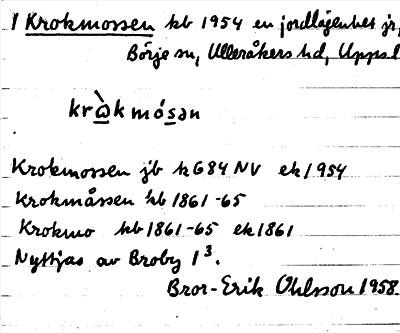 1 Krokmossen kb 1954 en jordlägenhet jr,
Börje sn, Ulleråkers hd, Uppsl
krὼkmósən
Krokmossen jb k684 NV ek 1954
Krokmåssen kb 1861-65
Krokmo kb 1861-65 ek 1861
Nyttjas av Broby 1³.
Bror-Erik Ohlsson 1958